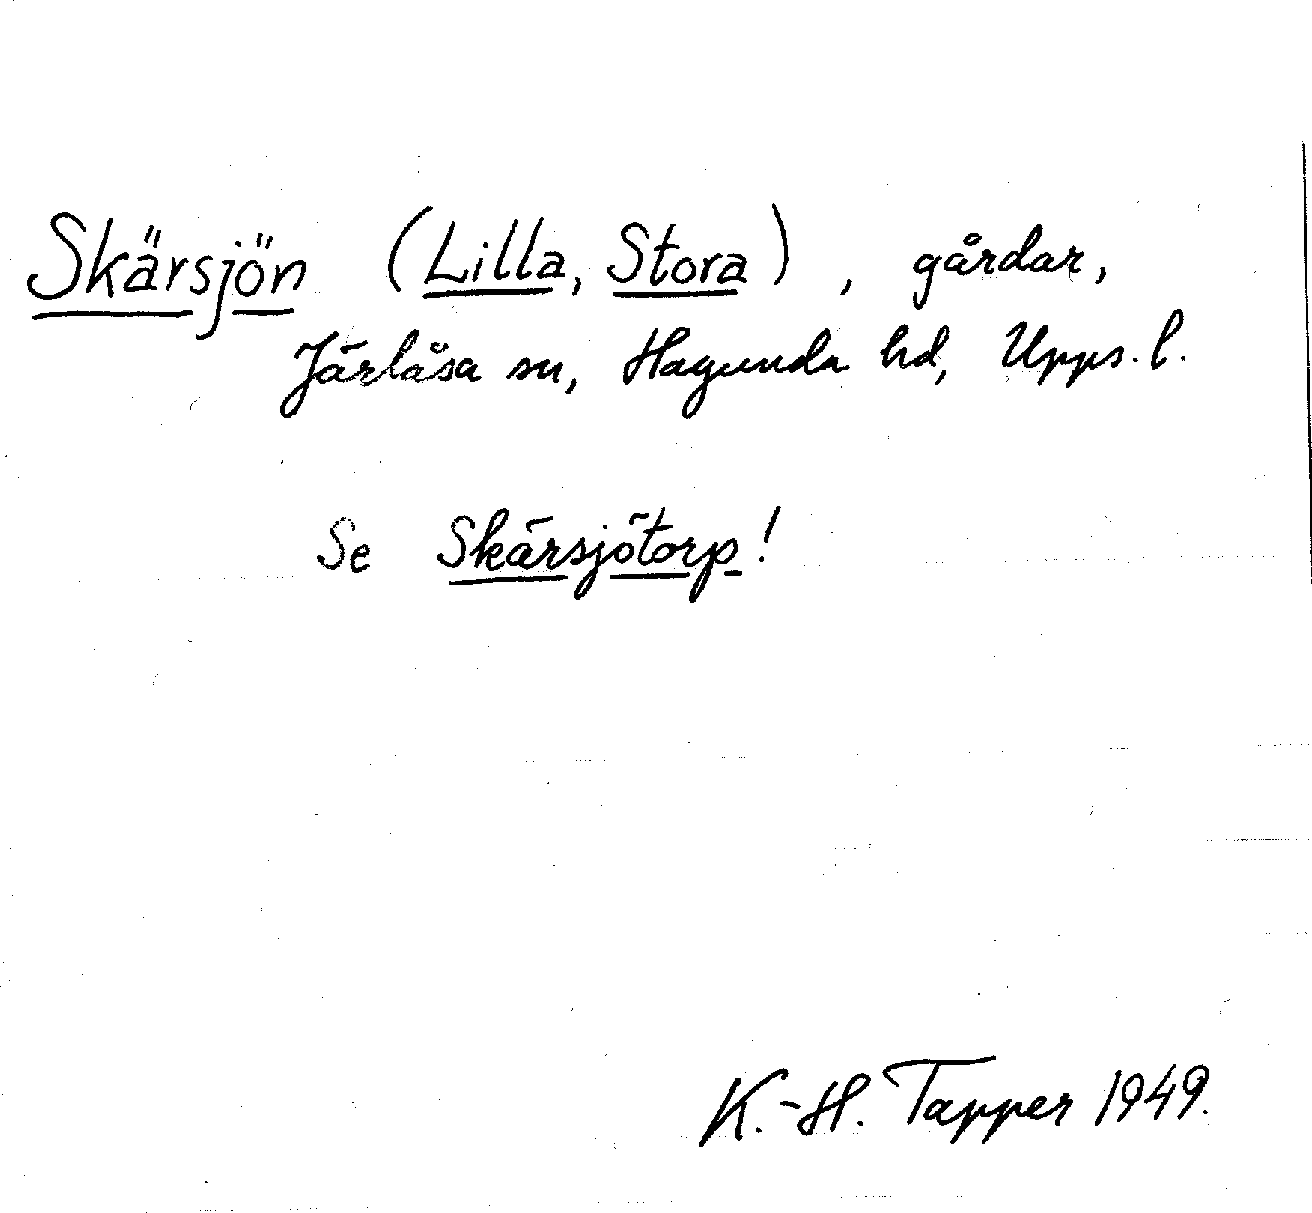 Skärsjön (Lilla, Stora), gårdar,
Järlåsa sn, Hagunda hd, Upps. l.
Se Skärsjötorp!
K.-H. Tapper 1949.